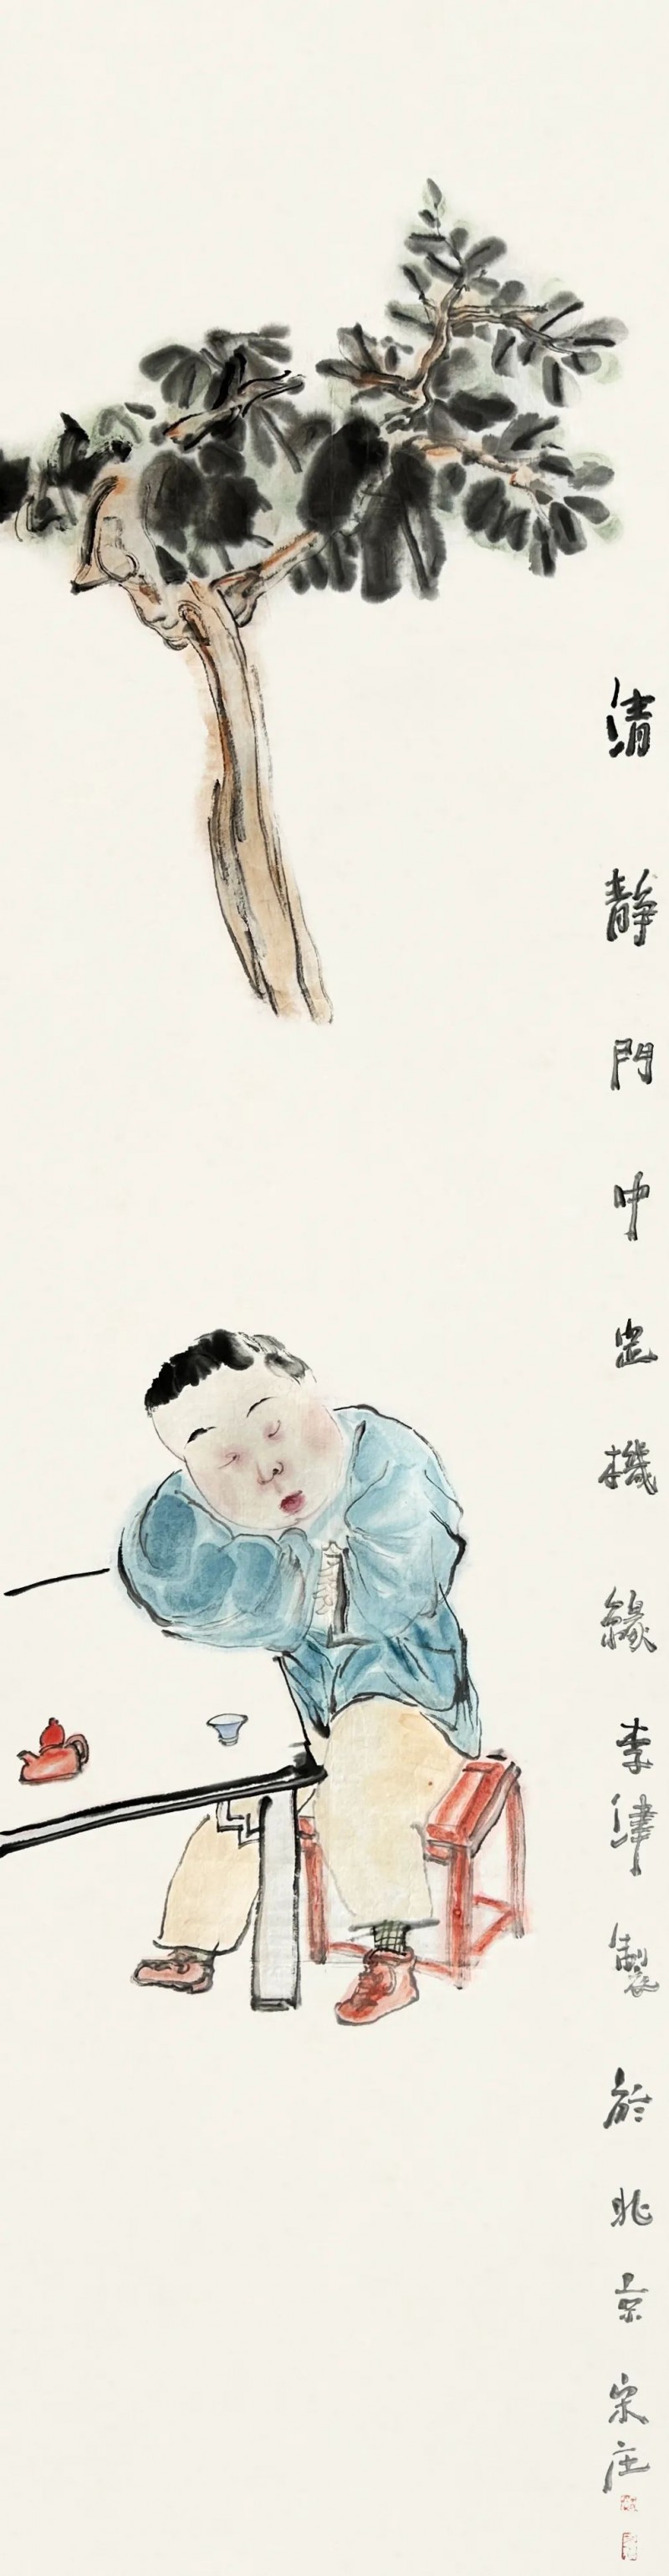 清靜門中出機緣李津製於北京宋庄